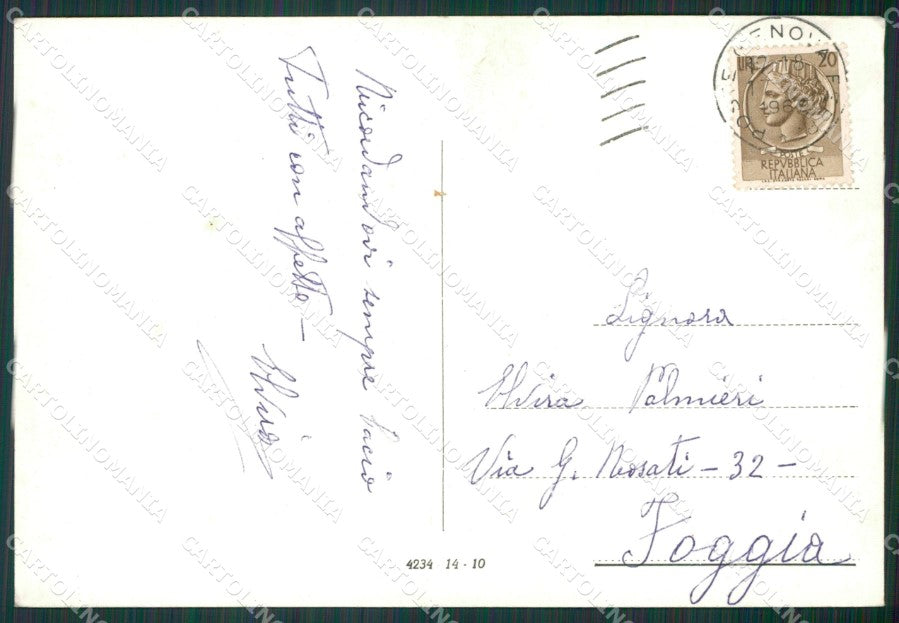 Ricordandovi sempre bacio
Tutti con affetto –
Elvira
LIRE 20
REPVBBLICA
ITALIANA
Signora
Elvira Palmieri
Via G. Rosati – 32 –
Foggia
4234 14 - 10
CARTOLINOMANIA